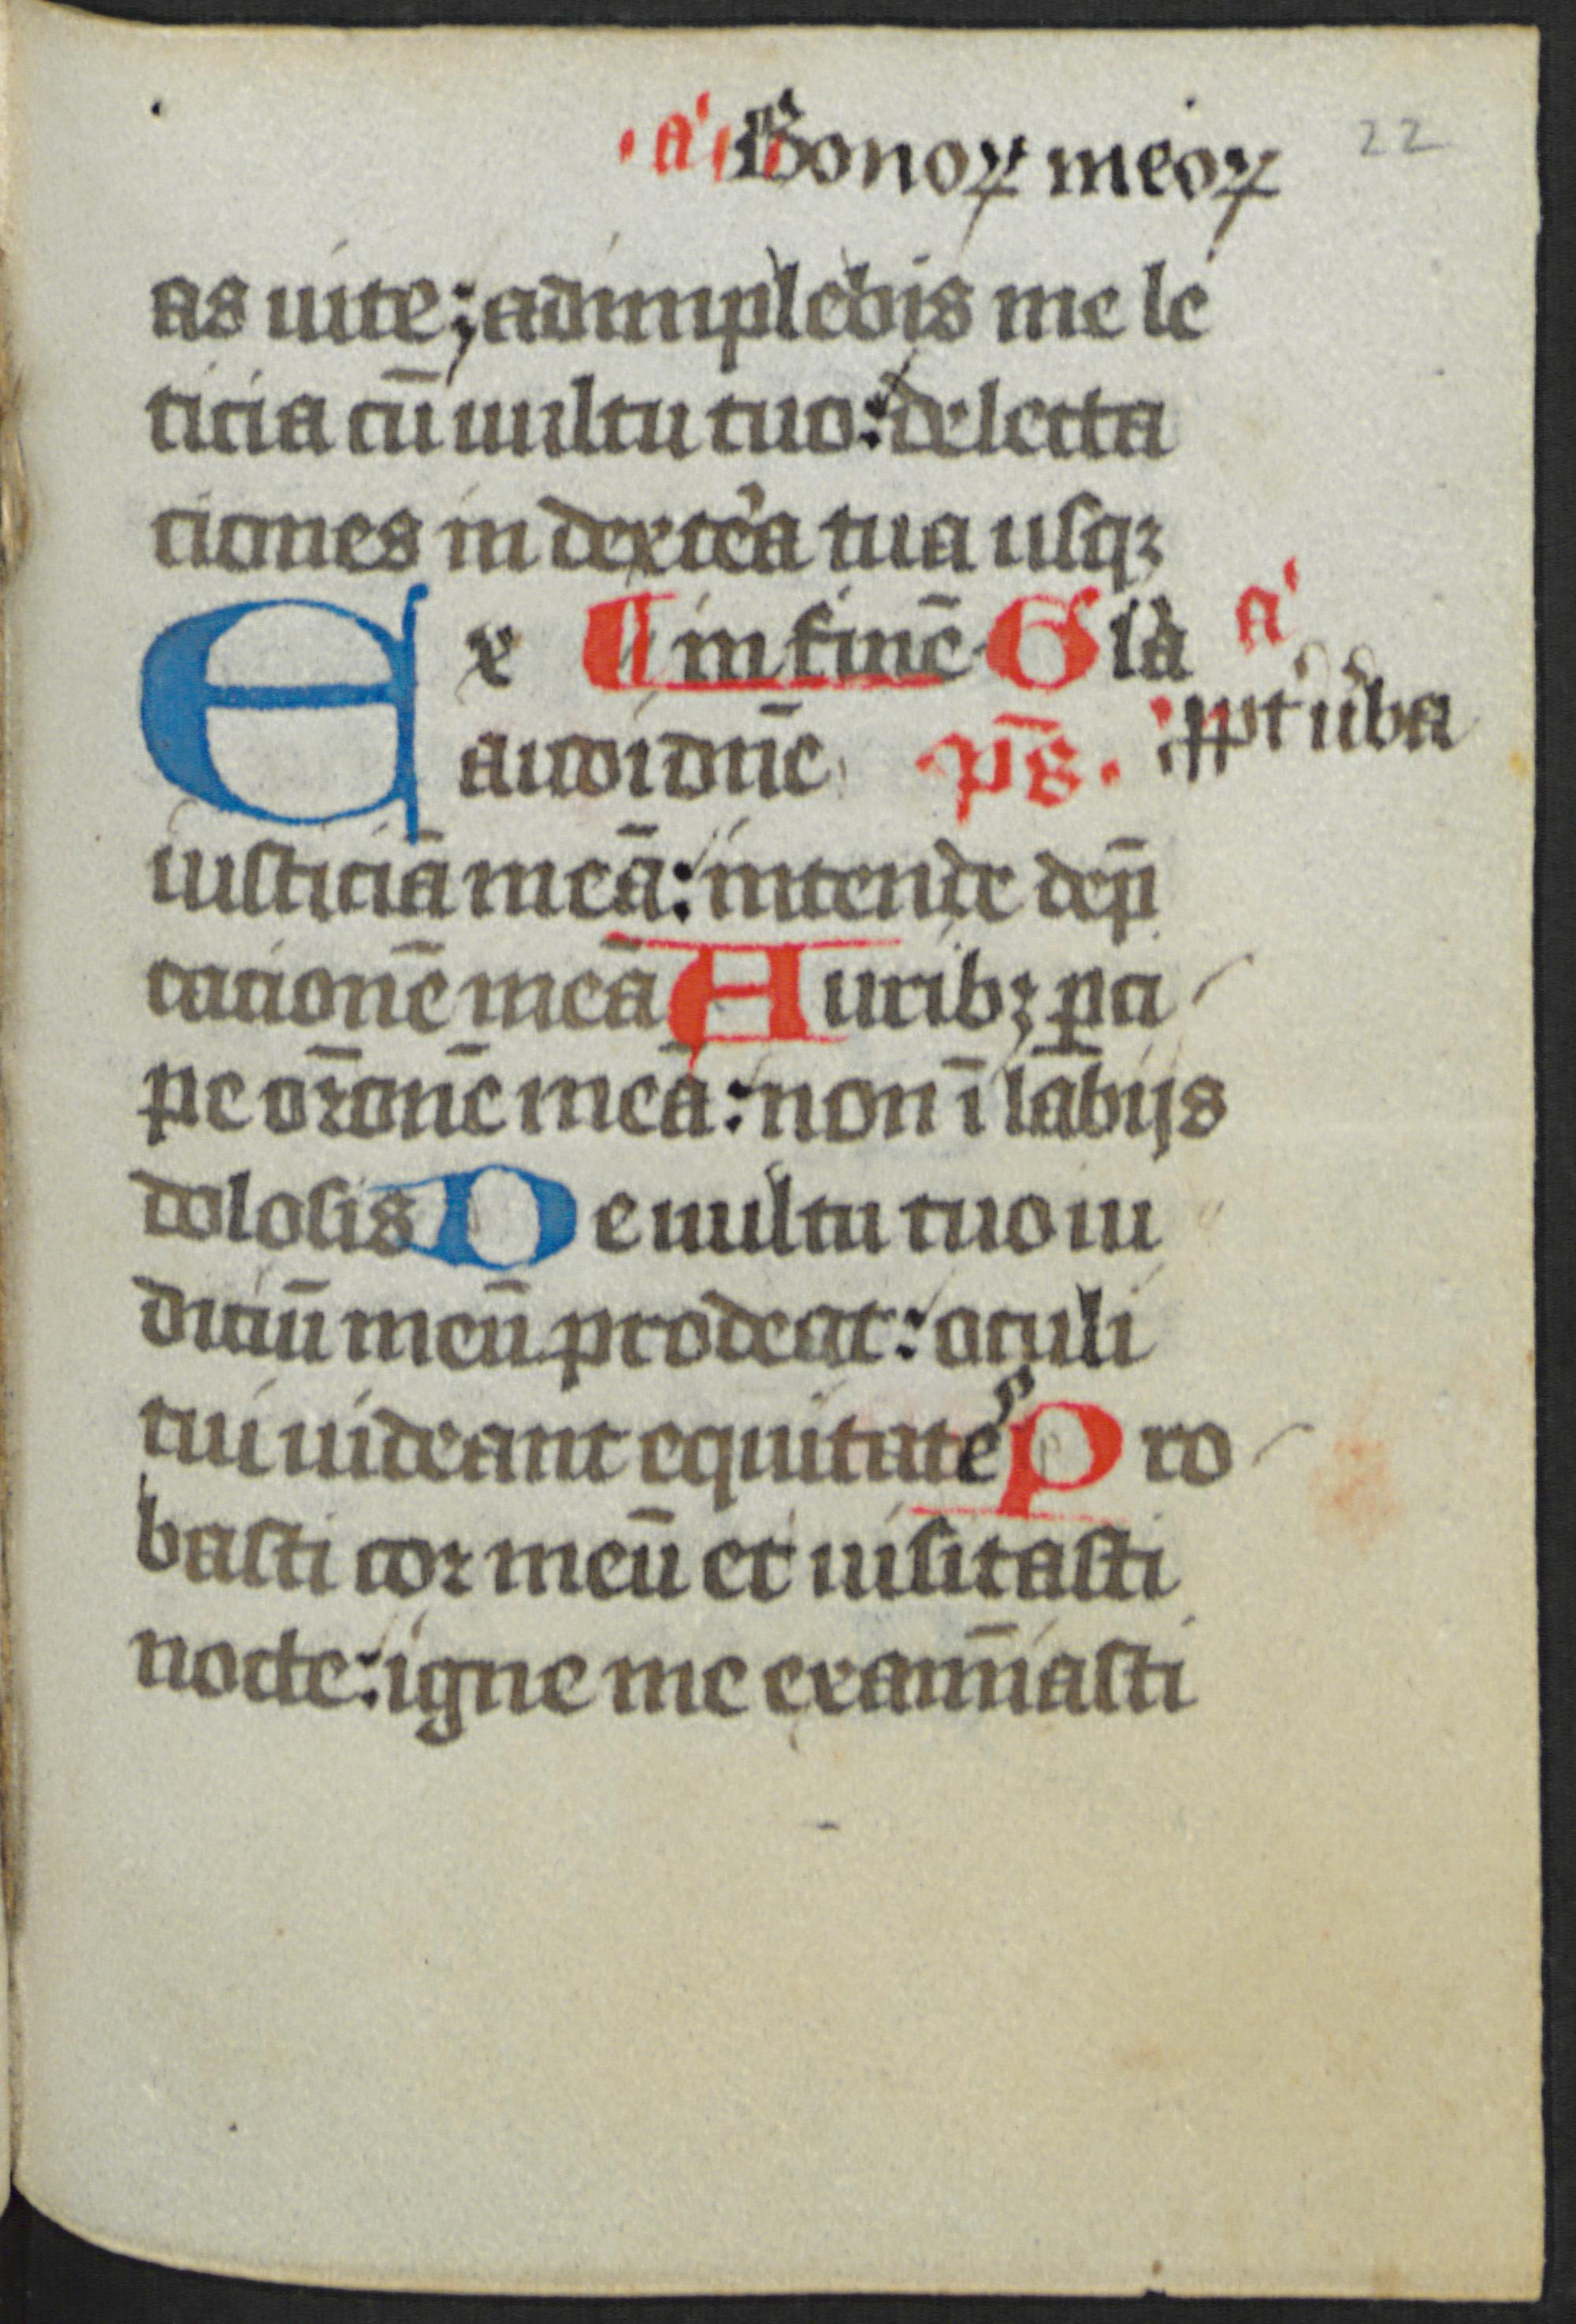 ·a· Bonoꝝ meoꝝ 22
as uite; adimplebis me le
ticia cū uultu tuo: delecta
ciones in dextera tua usqꝫ
Ex ¶ in finē Gla a
audi dn̄e p̄s. ppt̓ uba
iusticiā meā: intende dep̄
cacionē meā Auribꝫ ꝑci
pe or̄onē meā: non ī labijs
dolosis De uultu tuo iu
diciū meū prodeat: oculi
tui uideant equitatē Pro
basti cor meū et uisitasti
nocte: igne me examīasti